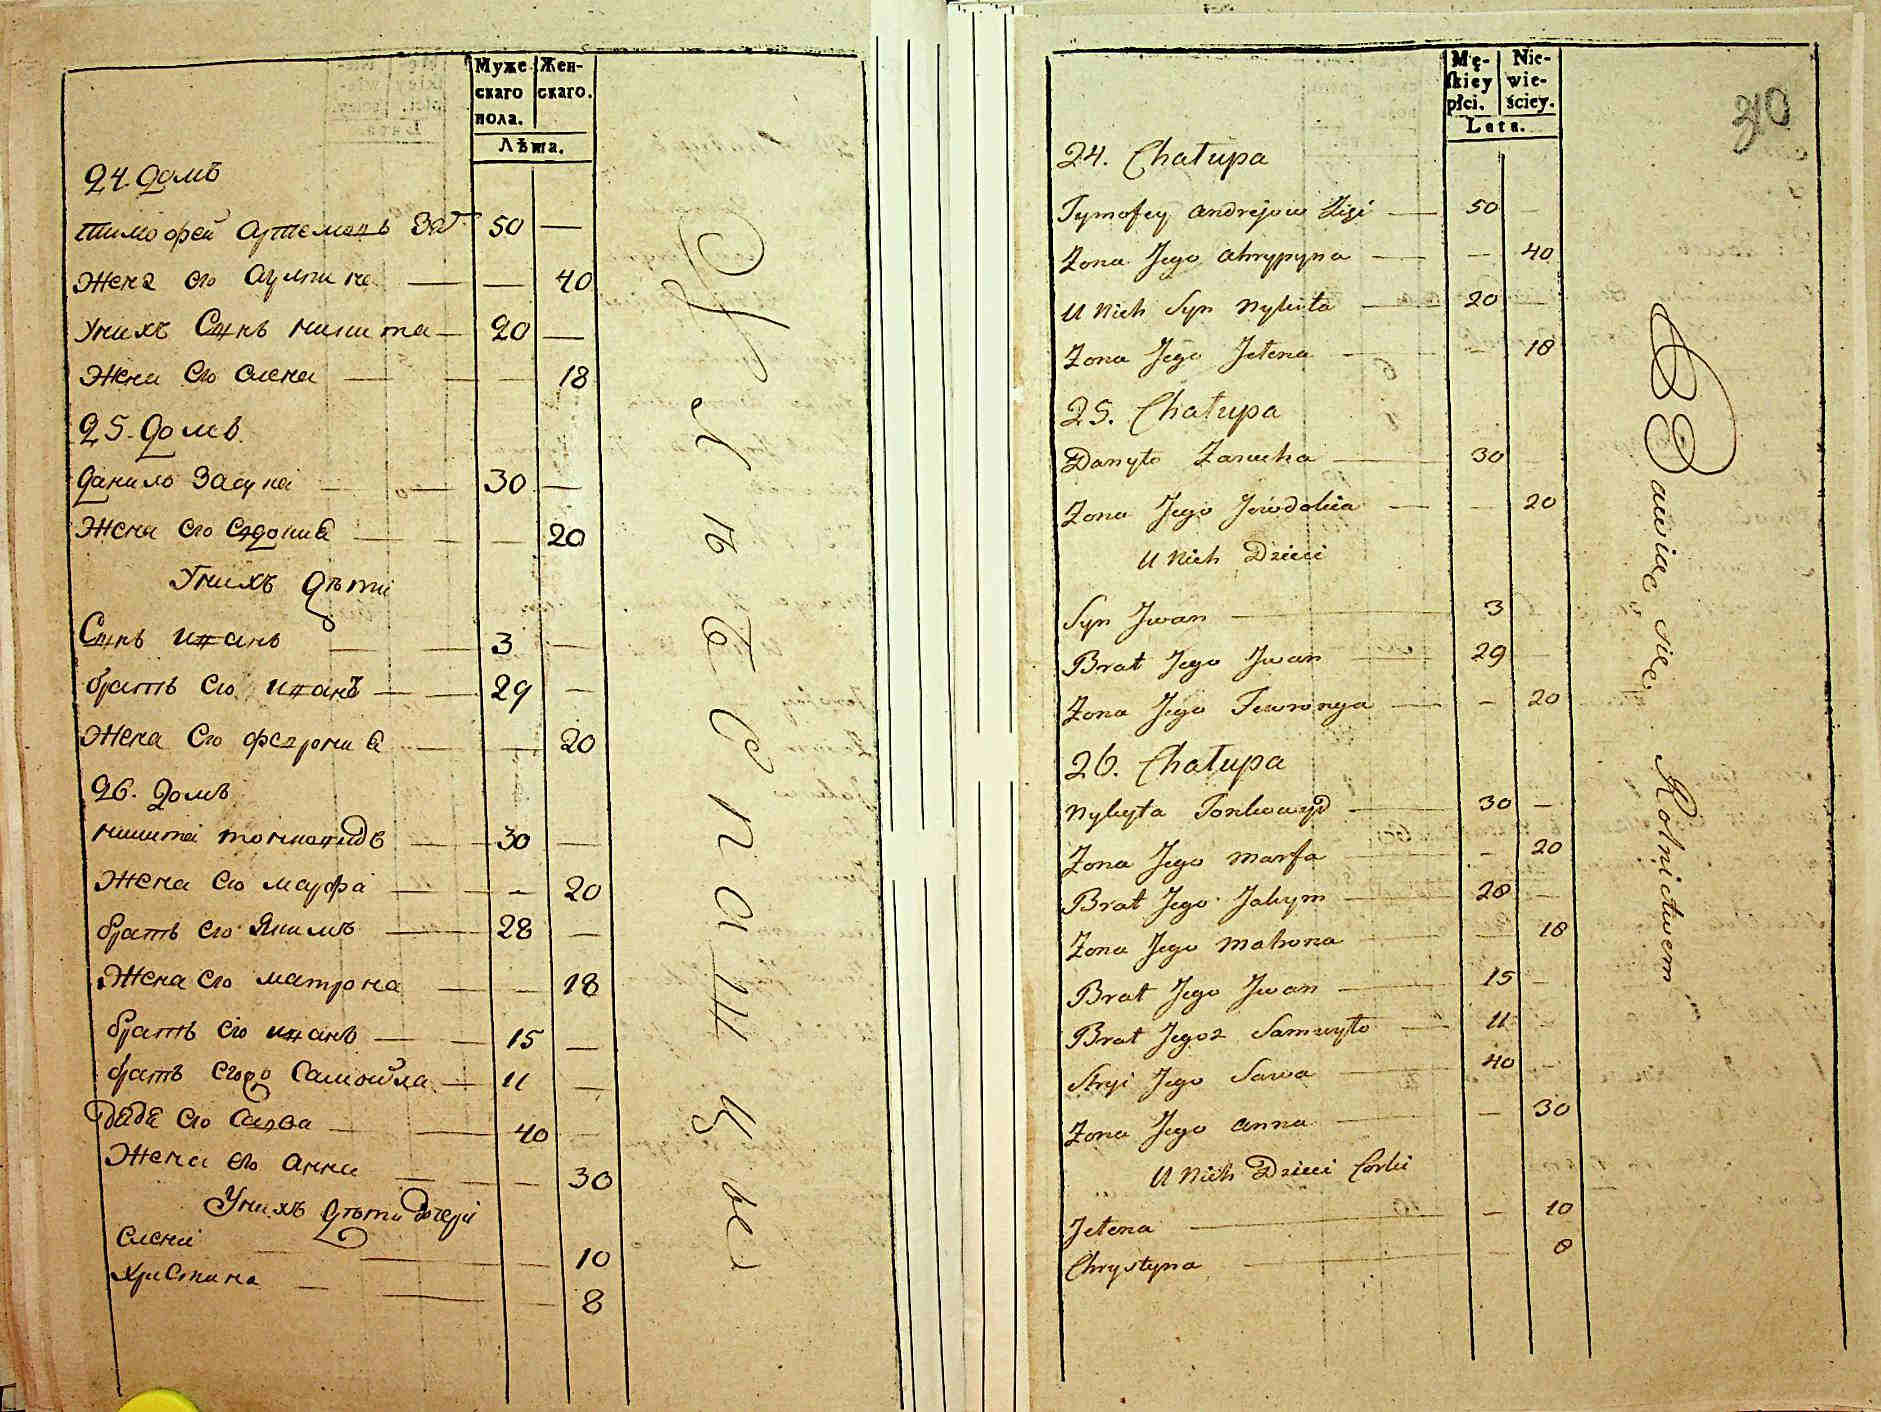 Муже
скаго
пола.
Жен-
скаго.
Лѣта.
24. домъ
тимофей 50
жена его 40
Унихъ Сынъ никита 20
Жена его олена 18
25. домъ
данило Засуха 30
Жена его 20
Унихъ дѣти
Сынъ иванъ 3
братъ его иванъ 29
жена его феврония 20
26. домъ
никита 30
жена его марфа 20
братъ его Якимъ 28
жена его матрона 18
братъ его иванъ 15
братъ его2 Самойла 11
дядя его Савва 40
Жена его анна 30
Унихъ дѣти дочери
олена 10
христина 8
Mę-
skiey
płci.
Nie-
wie-
ściey.
Lata.
24. Chałupa
Tymofey Andrejow 50
Żona Jego Ahrypyna 40
U Nich Syn Nykita 20
Żona Jego Jełena 18
25. Chałupa
Danyło Zasucha 30
Żona Jego Jewdokia 20
U Nich Dzieci
Syn Jwan 3
Brat Jego Jwan 29
Żona Jego Fewronya 20
26. Chałupa
Nykyta Tonkowyd 30
Żona Jego Marfa 20
Brat Jego Jakym 28
Żona Jego Matrona 18
Brat Jego Jwan 15
Brat Jego2 Samuyło 11
Stryi Jego Sawa 40
Żona Jego Anna 30
U Nich Dzieci Corki
Jełena 10
Chrystyna 8
Bawiąc się Rolnictwem